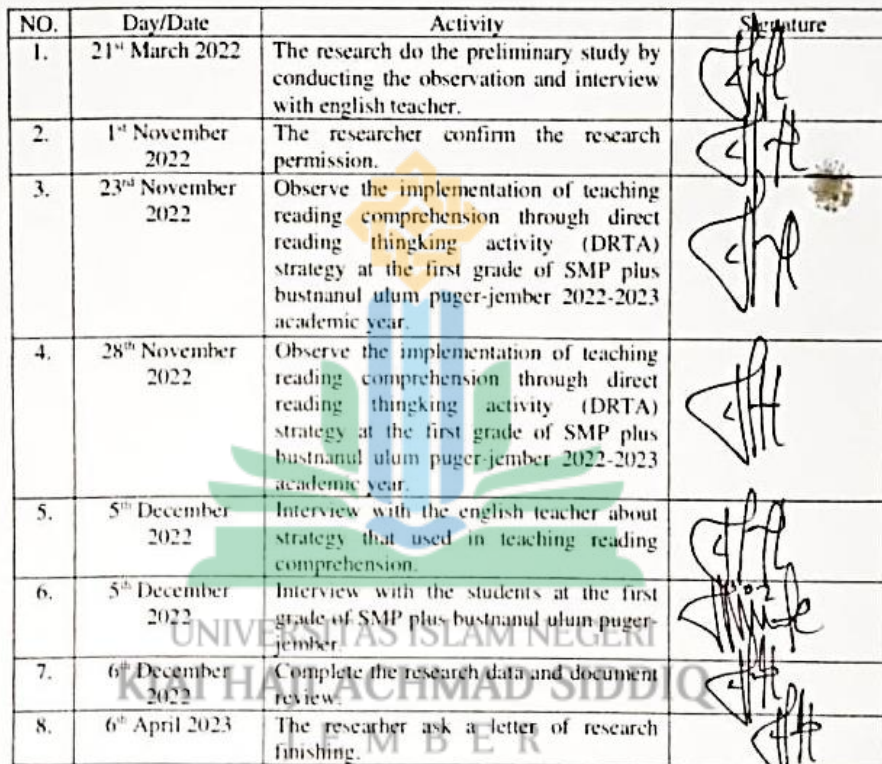 NO. Day/Date Activity Signature
1. 21st March 2022 The research do the preliminary study by
conducting the observation and interview
with english teacher.
2. 1st November The researcher confirm the research
2022 permission.
3. 23rd November Observe the implementation of teaching
2022 reading comprehension through direct
reading thingking activity (DRTA)
strategy at the first grade of SMP plus
bustnanul ulum puger-jember 2022-2023
academic year.
4. 28th November Observe the implementation of teaching
2022 reading comprehension through direct
reading thingking activity (DRTA)
strategy at the first grade of SMP plus
bustnanul ulum puger-jember 2022-2023
academic year.
5. 5th December Interview with the english teacher about
2022 strategy that used in teaching reading
comprehension.
6. 5th December Interview with the students at the first
2022 grade of SMP plus bustnanul ulum puger-
jember.
UNIVERSITAS ISLAM NEGERI
7. 6th December Complete the research data and document
2022 review.
KIAI HAJI ACHMAD SIDDIQ
8. 6th April 2023 The researher ask a letter of research
finishing.
JEMBER